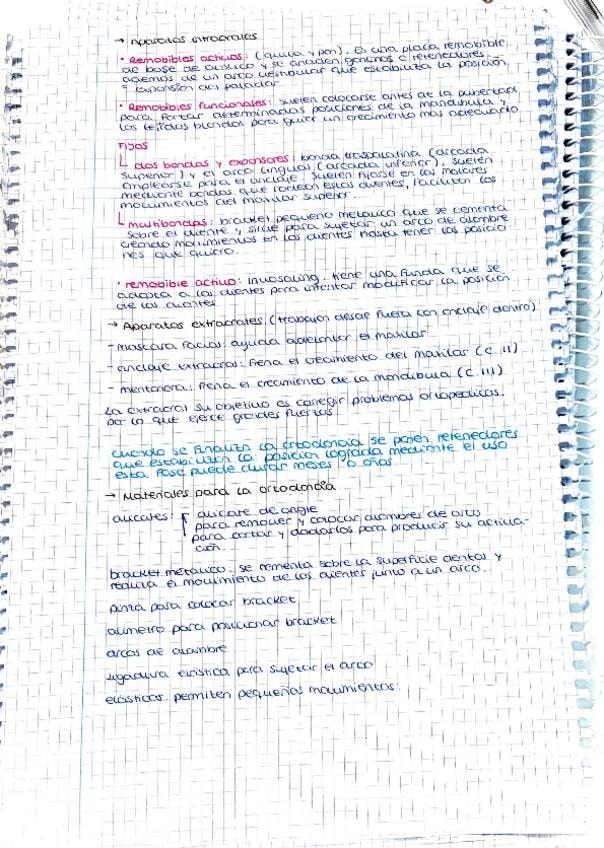 → Aparatos intraorales
• Remobibles activos: (quita y pon). Es una placa remobible
de base de acrílico y se añaden ganchos o retenedores,
además de un arco vestibular que estabiliza la posición,
= expansión del paladar
• Remobibles funcionales: suelen colocarse antes de la pubertad
para forzar determinadas posiciones de la mandíbula y
los tejidos blandos para guiar un crecimiento más adecuado
FIJOS
dos bandas y expansores: banda traspalatina (arcada
superior) y el arco lingual (arcada inferior), suelen
emplearse para el anclaje. Suelen fijarse en los molares
mediante bandas que rodean estos dientes, facilitan los
movimientos del maxilar superior.
multibandas: bracket pequeño metálico que se cementa
sobre el diente y sirve para sujetar un arco de alambre
creando movimientos en los dientes hasta tener las posicio
nes que quiero.
• remobible activo: invosaling. tiene una funda que se
adapta a los dientes para intentar modificar la posición
de los dientes
→ Aparatos extraorales (trabajan desde fuera con anclaje dentro)
- mascara facial: ayuda adelantar el maxilar
- anclaje extraoral: frena el crecimiento del maxilar (C. II)
- mentonera: frena el crecimiento de la mandíbula (C. III)
La extraoral su objetivo es corregir problemas ortopédicos,
por lo que ejerce grandes fuerzas.
Cuando se finaliza la ortodoncia se ponen retenedores
que estabilizan la posición lograda mediante el uso
esta fase puede durar meses o años
→ Materiales para la ortodoncia
alicates: alicate de angle
para remover y colocar alambres de arco
para cortar y doblarlos para producir su activa-
ción.
bracket metálico: se cementa sobre la superficie dental y
realiza el movimiento de los dientes junto a un arco.
pinza para colocar bracket
altimetro para posicionar bracket
arcos de alambre
ligadura elástica para sujetar el arco
elásticos: permiten pequeños movimientos.